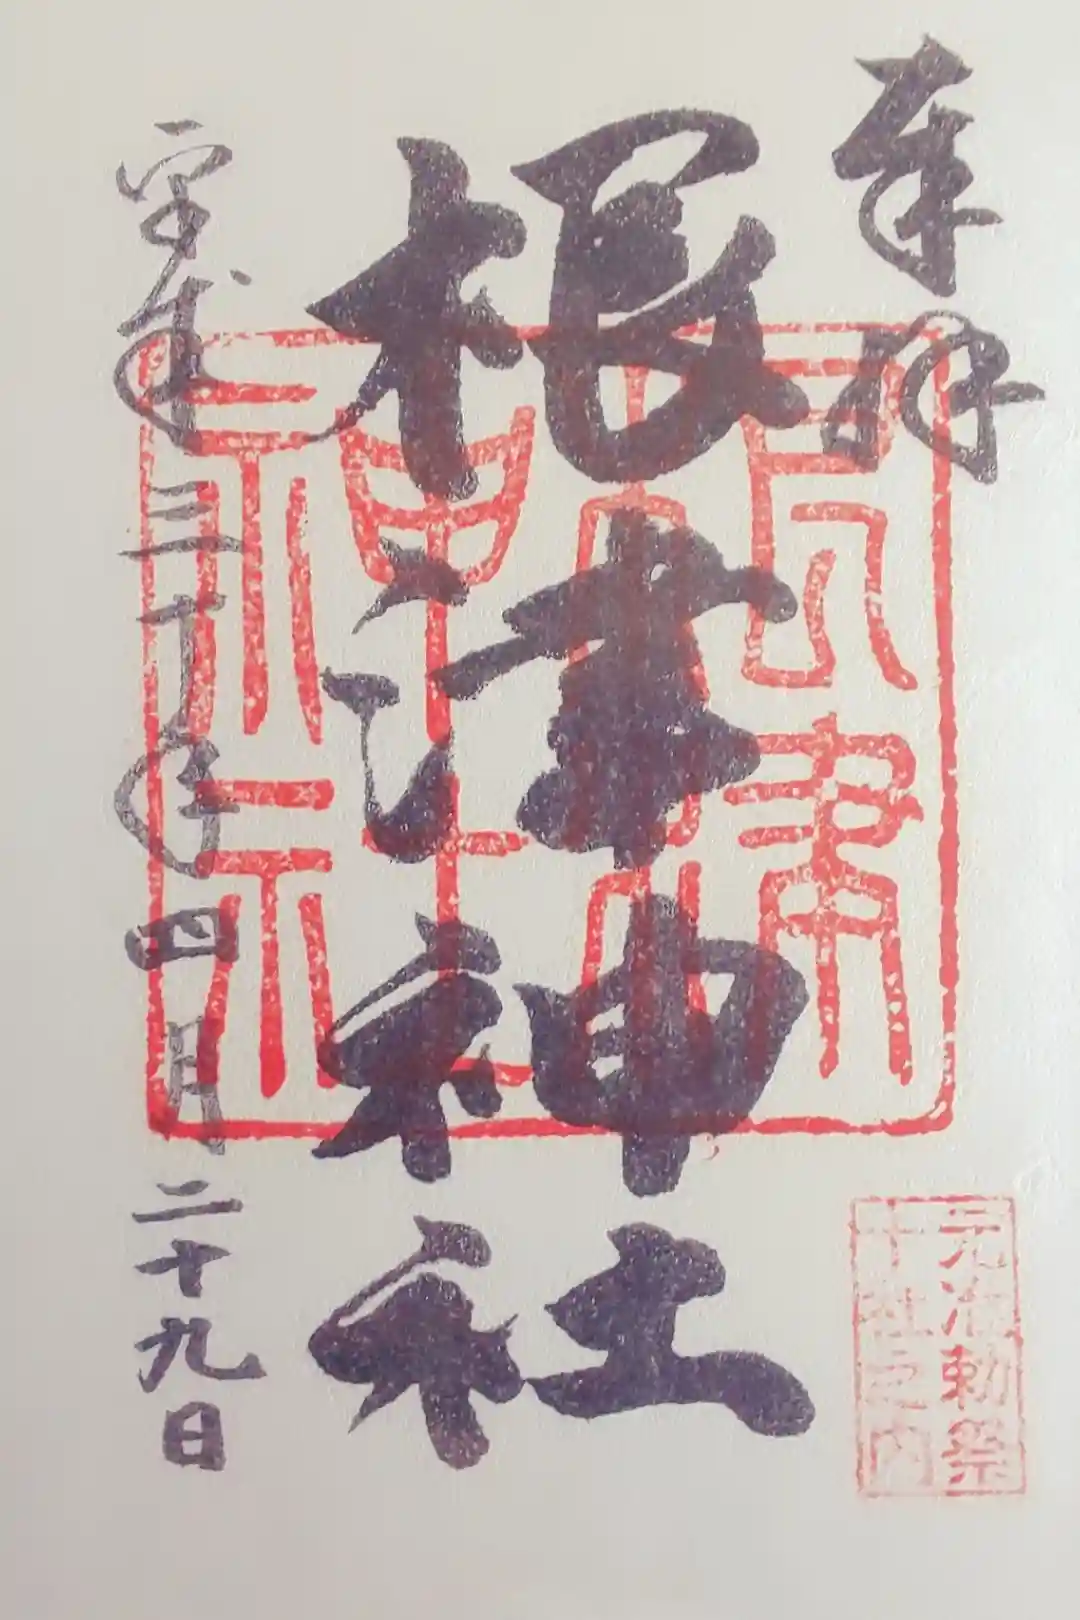 奉拝
根津神社
平成三十年四月二十九日
根津
神社
元准勅祭
十社之内